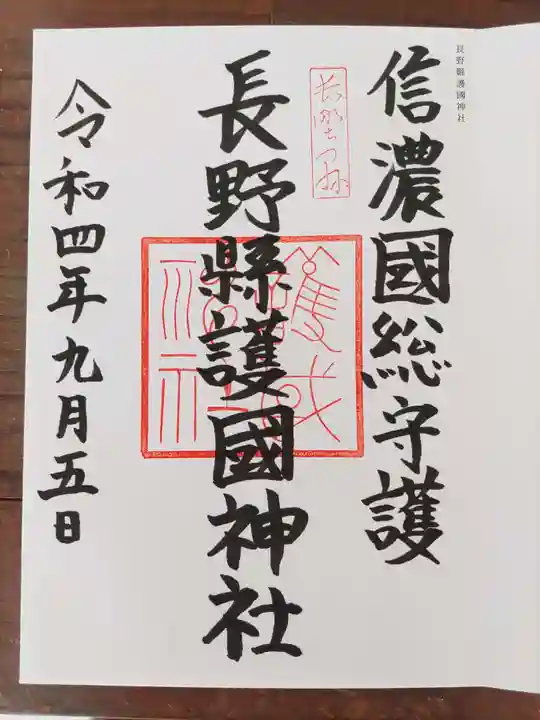 長野縣護國神社
信濃國総守護
長野縣護國神社
令和四年九月五日